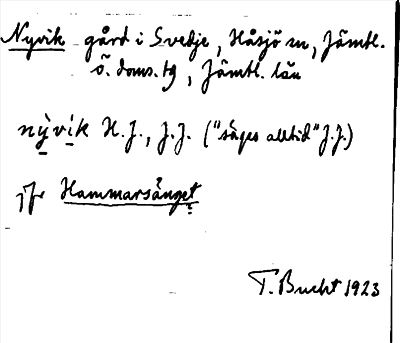 Nyvik gård i Svedje, Håsjö sn, Jämtl.
ö. doms. tg, Jämtl. län
nỳvik H. J., J. J. ("säges alltid" J. J.)
jfr Hammarsänget
T. Bucht 1923